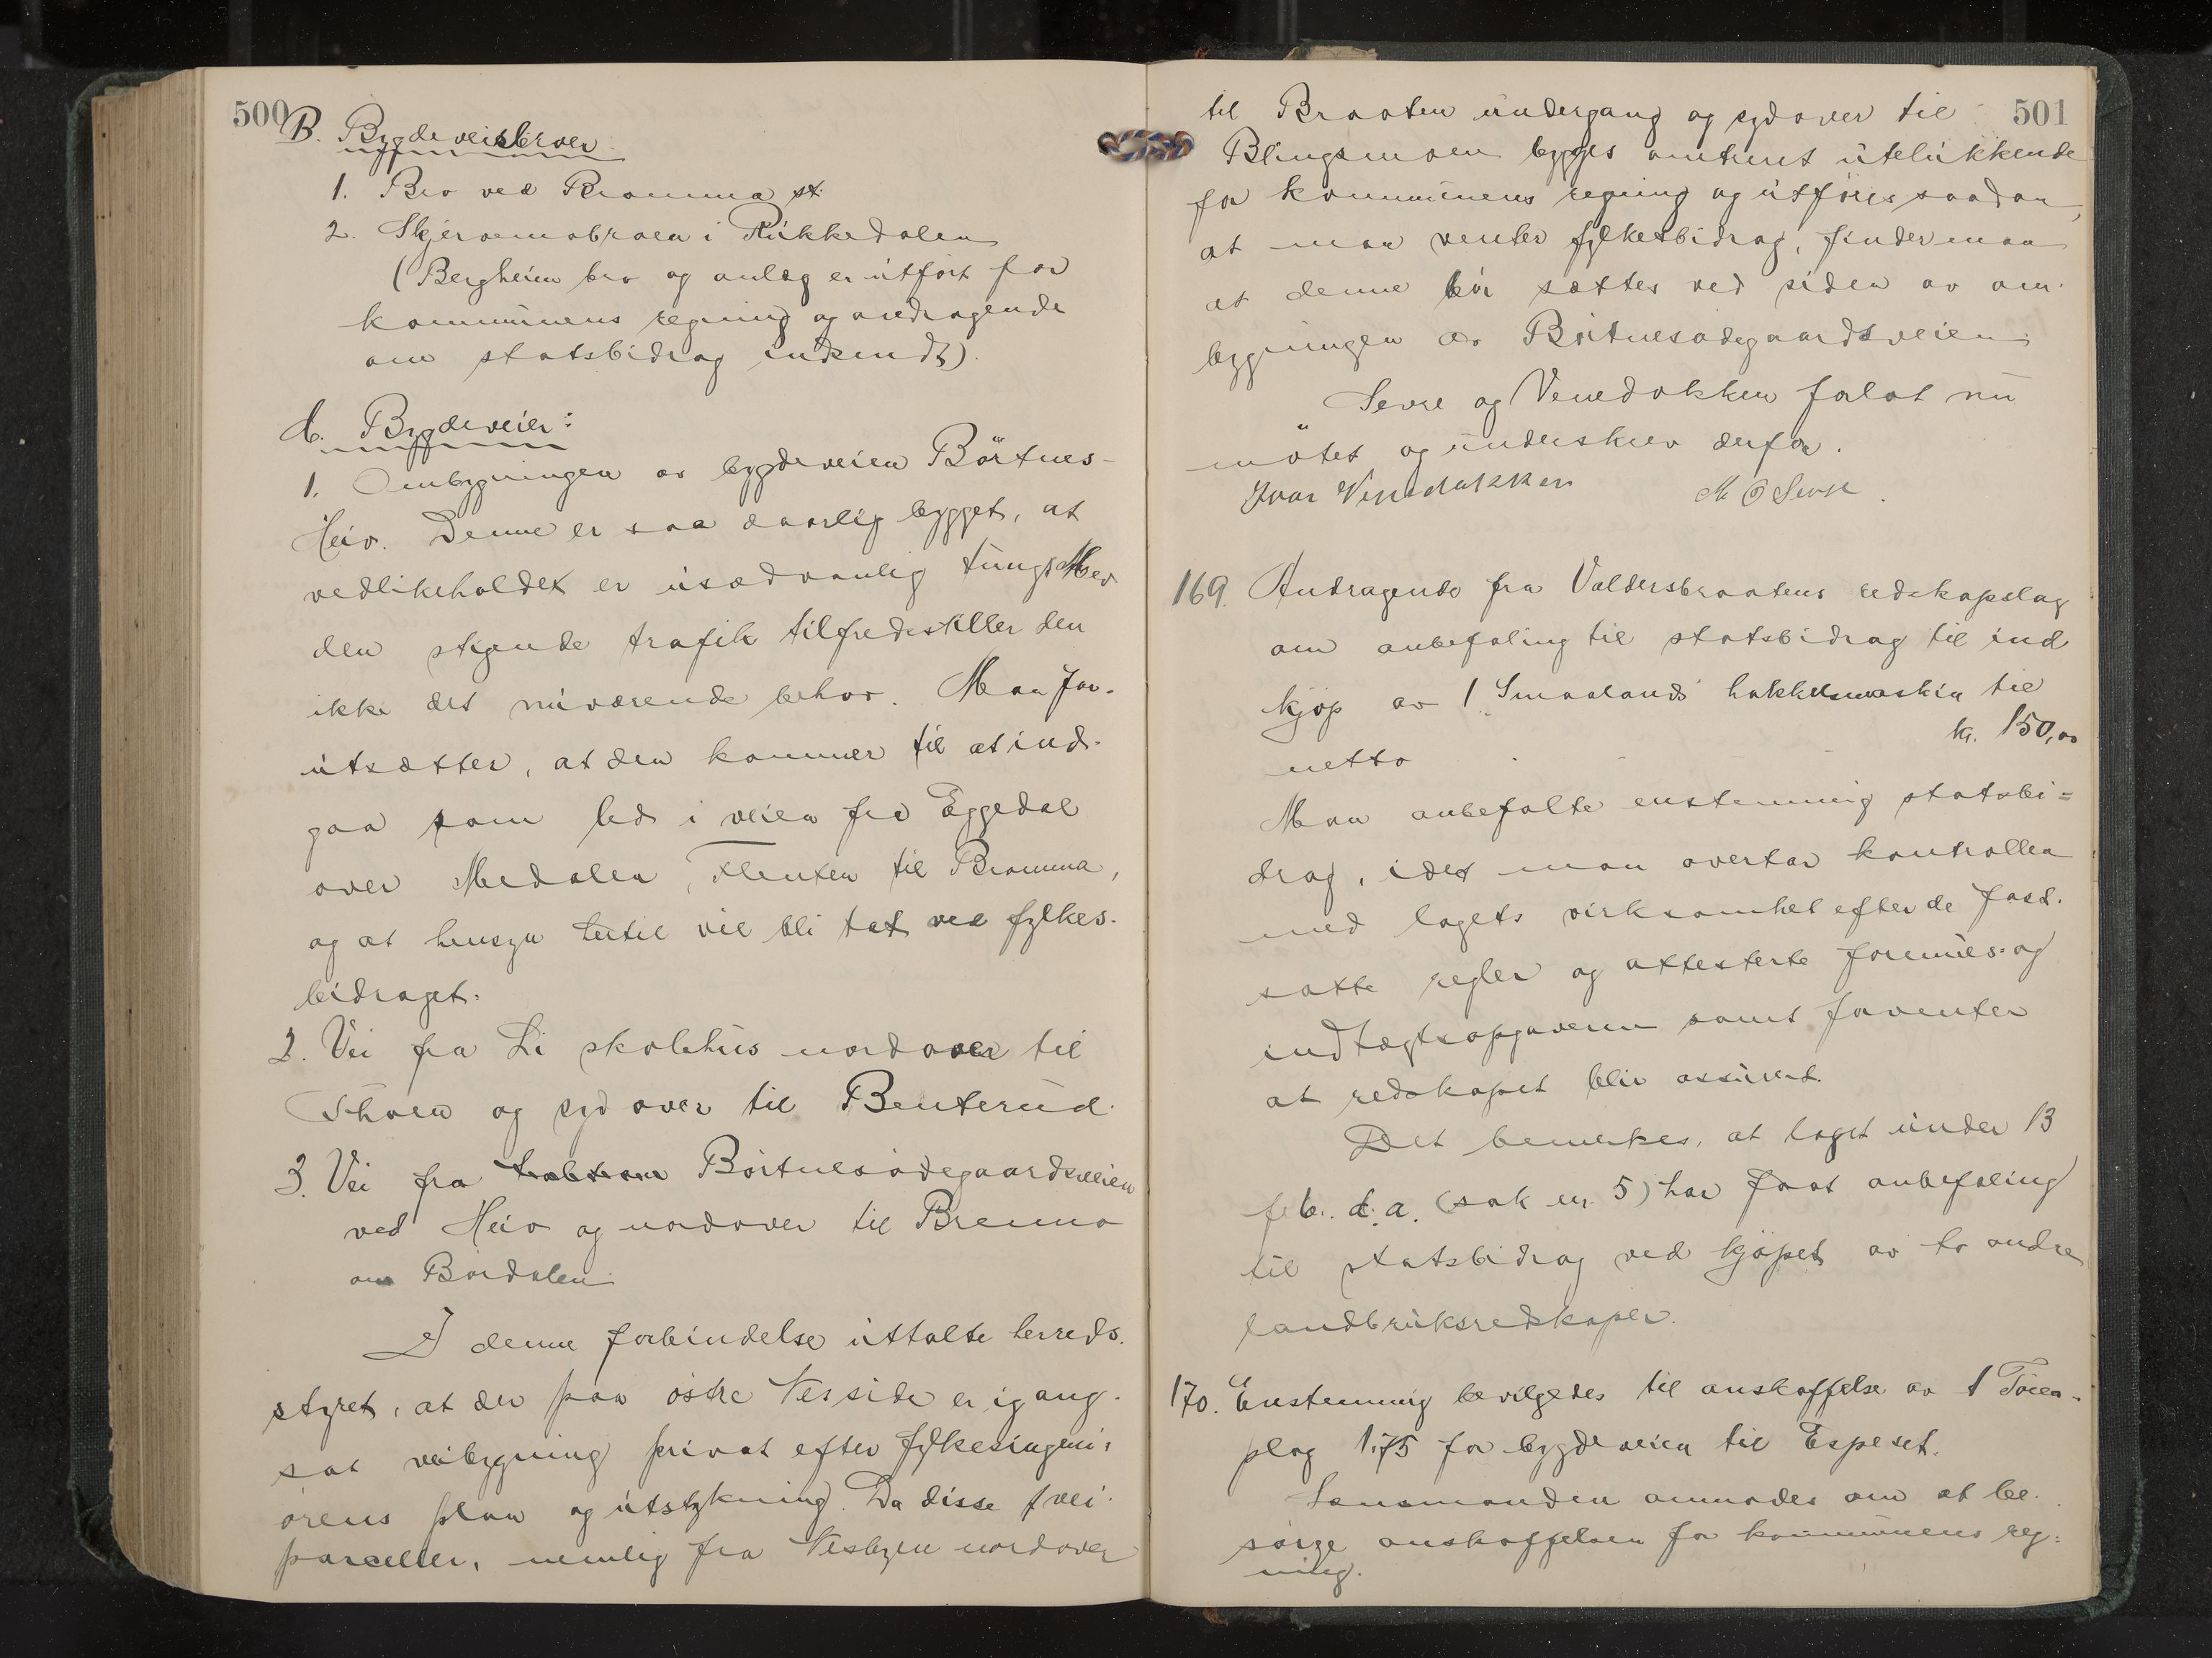 500
B. Bygdeveisbroer
1. Bro ved Bromma st.
2. Skjervemobroen i Rukkedalen
(Bergheim bro og anlæg er utført for
kommunens regning og andragende
om statsbidrag indsendt).
C. Bygdeveier:
1. Ombygningen av bygdeveien Börtnes-
Heio. Denne er saa daarlig bygget, at
vedlikeholdet er usædvanlig tungt. Med
den stigende trafik tilfredsstiller den
ikke det nuværende behov. Man for-
utsætter, at den kommer til at ind-
gaa som led i veien fra Eggedal
over Medalen, Flenten til Bromma,
og at hensyn hertil vil bli tat ved fylkes-
bidraget.
2. Vei fra Li skolehus nordover til
Thoen og sydover til Benterud.
3. Vei fra Börtnesødegaardsveien
ved Heio og nordover til Brenno
om Bördalen.
I denne forbindelse uttalte herreds-
styret, at der paa østre Nesside er igang-
sat veibygning privat efter fylkesingeni-
ørens plan og utstykning. Da disse 2 vei-
parceller, nemlig fra Nesbyen nordover
501
til Braaten undergang og sydover til
Blingsmoen bygges omtrent utelukkende
for kommunens regning og utføres saadan,
at man venter fylkesbidrag, finder man
at denne bör sættes ved siden av om-
bygningen av Börtnesødegaardsveien.
Sevre og Venedokken forlot nu
mötet og underskrev derfor.
Ivar Venedokken M O Sevre.
169. Andragende fra Valdersbraatens redskapslag
om anbefaling til statsbidrag til ind
kjøp av 1 Smaalands hakkelsmaskin til
kr. 150,00
netto
Man anbefalte enstemmig statsbi=
drag, idet man overtar kontrollen
med lagets virksomhet efter de fast-
satte regler og attesterte formues- og
indtægtsopgaver samt forventer
at redskapet blir assurert.
Det bemerkes, at laget under 13
feb. d. a. (sak nr. 5) har faat anbefaling
til statsbidrag ved kjøpet av to andre
landbruksredskaper.
170. Enstemmig bevilgedes til anskaffelse av 1
plog 1.75 for bygdeveien til Espeset.
Lensmanden anmodes om at be-
sørge anskaffelsen for kommunens reg=
ning.